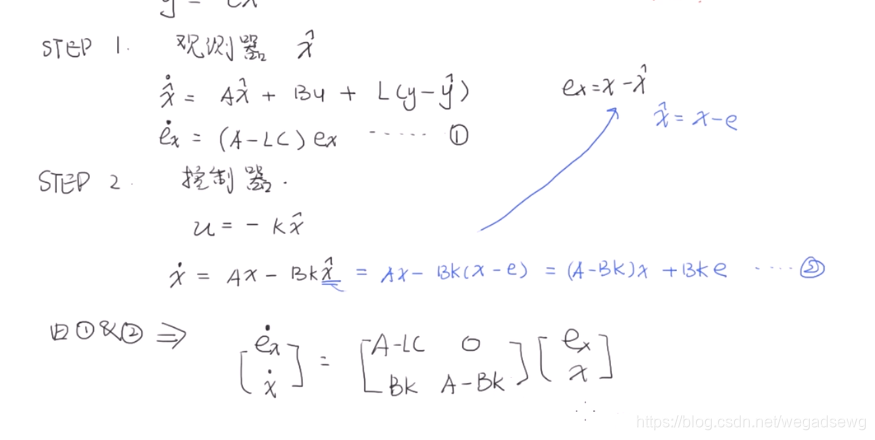 y = Cx
STEP 1. 观测器 x̂
x̂̇ = Ax̂ + Bu + L(y-ŷ)
ex = x - x̂
x̂ = x-e
ėx = (A-LC) ex ······ ①
STEP 2. 控制器.
u = - kx̂
ẋ = Ax - Bkx̂ = Ax- Bk(x-e) = (A-Bk)x + Bke ······ ②
由①&② ⇒ [ėx ẋ] = [A-LC 0 Bk A-Bk] [ex x]
https://blog.csdn.net/wegadsewg